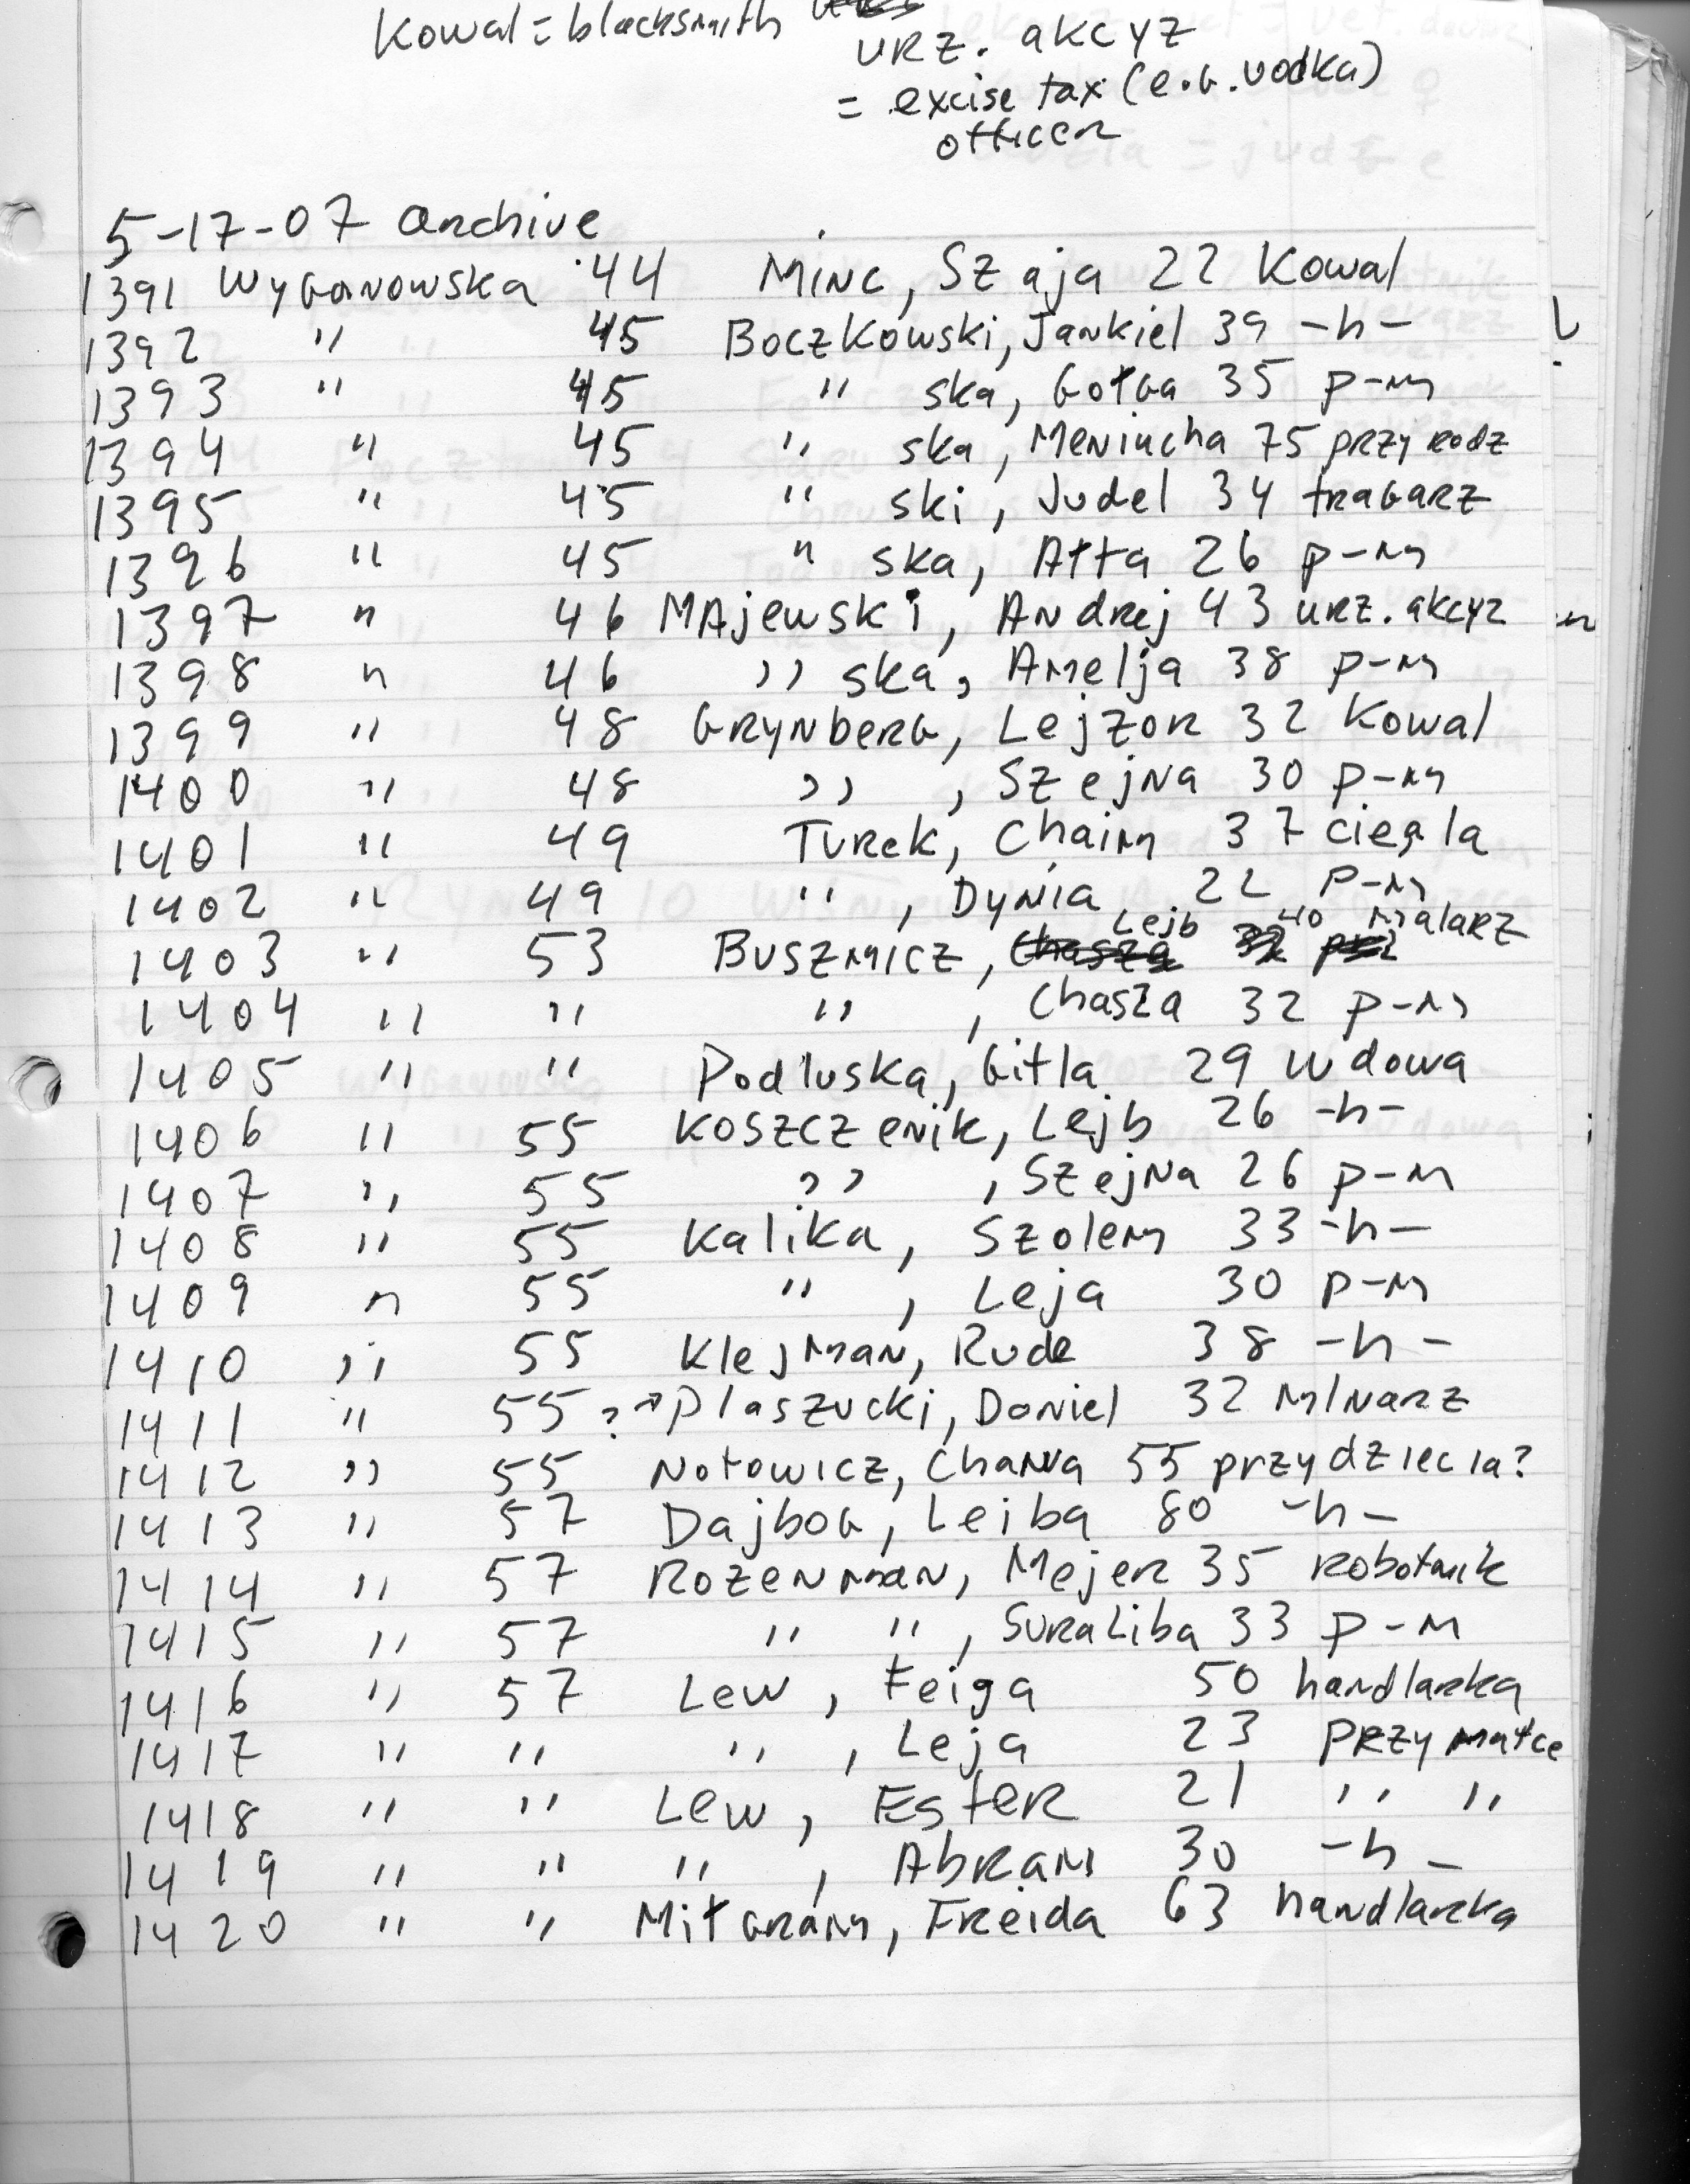 Kowal = blacksmith
urz. akcyz
= excise tax (e.g. vodka)
officer
5-17-07 Archive
1391 Wyganowska 44 Minc, Szaja 22 Kowal
1392 " 45 Boczkowski, Jankiel 39 -h-
1393 " 45 " ska, Gotga 35 p-m
1394 " 45 " ska, Meniucha 75 przy rodz
1395 " 45 " ski, Judel 34 tragarz
1396 " 45 " ska, Atta 26 p-m
1397 " 46 Majewski, Andrej 43 urz. akcyz
1398 " 46 " ska, Amelja 38 p-m
1399 " 48 Grynberg, Lejzor 32 Kowal
1400 " 48 " , Szejna 30 p-m
1401 " 49 Turek, Chaim 37 ciegla
1402 " 49 " , Dynia 22 p-m
1403 " 53 Buszmicz, Lejb 40 malarz
1404 " " " , Chasza 32 p-m
1405 " " Podluska, Gitla 29 wdowa
1406 " 55 Koszczenik, Lejb 26 -h-
1407 " 55 " , Szejna 26 p-m
1408 " 55 Kalika, Szolem 33 -h-
1409 " 55 " , Leja 30 p-m
1410 " 55 Klejman, Rude 38 -h-
1411 " 55 ?→ Plaszucki, Daniel 32 mlnarz
1412 " 55 Notowicz, Chanva 55 przy dziecia?
1413 " 57 Dajbog, Leiba 80 -h-
1414 " 57 Rozenman, Mejer 35 robotnik
1415 " 57 " " , Sura Liba 33 p-m
1416 " 57 Lew, Feiga 50 handlarka
1417 " " " , Leja 23 przy matce
1418 " " Lew, Ester 21 " "
1419 " " " , Abram 30 -h-
1420 " " Mitgram, Freida 63 handlarka